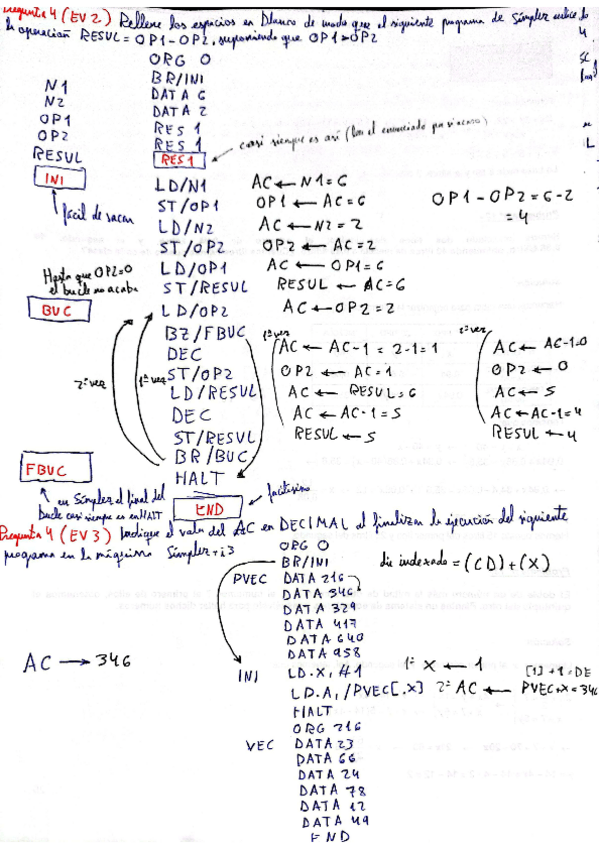 Pregunta 4 (EV 2) Rellene los espacios en blanco de modo que el siguiente programa de Símplez realice
la operación RESUL = OP1 - OP2, suponiendo que OP1 > OP2
ORG 0
BR/INI
N1 DATA 6
N2 DATA 2
OP1 RES 1
OP2 RES 1
RESUL RES 1 casi siempre es así (lee el enunciado por si acaso)
INI LD/N1 AC ← N1 = 6
fácil de sacar ST/OP1 OP1 ← AC = 6 OP1 - OP2 = 6-2
= 4
LD/N2 AC ← N2 = 2
ST/OP2 OP2 ← AC = 2
Hasta que OP2=0 LD/OP1 AC ← OP1 = 6
el bucle no acaba ST/RESUL RESUL ← AC = 6
BUC LD/OP2 AC ← OP2 = 2
BZ/FBUC 1ª vez 2ª vez
DEC AC ← AC-1 = 2-1 = 1 AC ← AC-1=0
2ª vez 1ª vez ST/OP2 OP2 ← AC = 1 OP2 ← 0
LD/RESUL AC ← RESUL = 6 AC ← 5
DEC AC ← AC-1 = 5 AC ← AC-1 = 4
ST/RESUL RESUL ← 5 RESUL ← 4
BR/BUC
FBUC HALT
en Símplez el final del END facilísimo
bucle casi siempre es en HALT
Pregunta 4 (EV 3) Indique el valor del AC en DECIMAL al finalizar la ejecución del siguiente
programa en la máquina Símplez+i3
ORG 0
BR/INI dir indexado = (CD) + (X)
PVEC DATA 216
DATA 346
DATA 329
DATA 417
DATA 640
DATA 958
AC → 346
INI LD.X, #1 1º X ← 1 [1] + 1 = DE
LD.A, /PVEC[.X] 2º AC ← PVEC+X = 346
HALT
ORG 216
VEC DATA 23
DATA 66
DATA 24
DATA 78
DATA 12
DATA 49
END